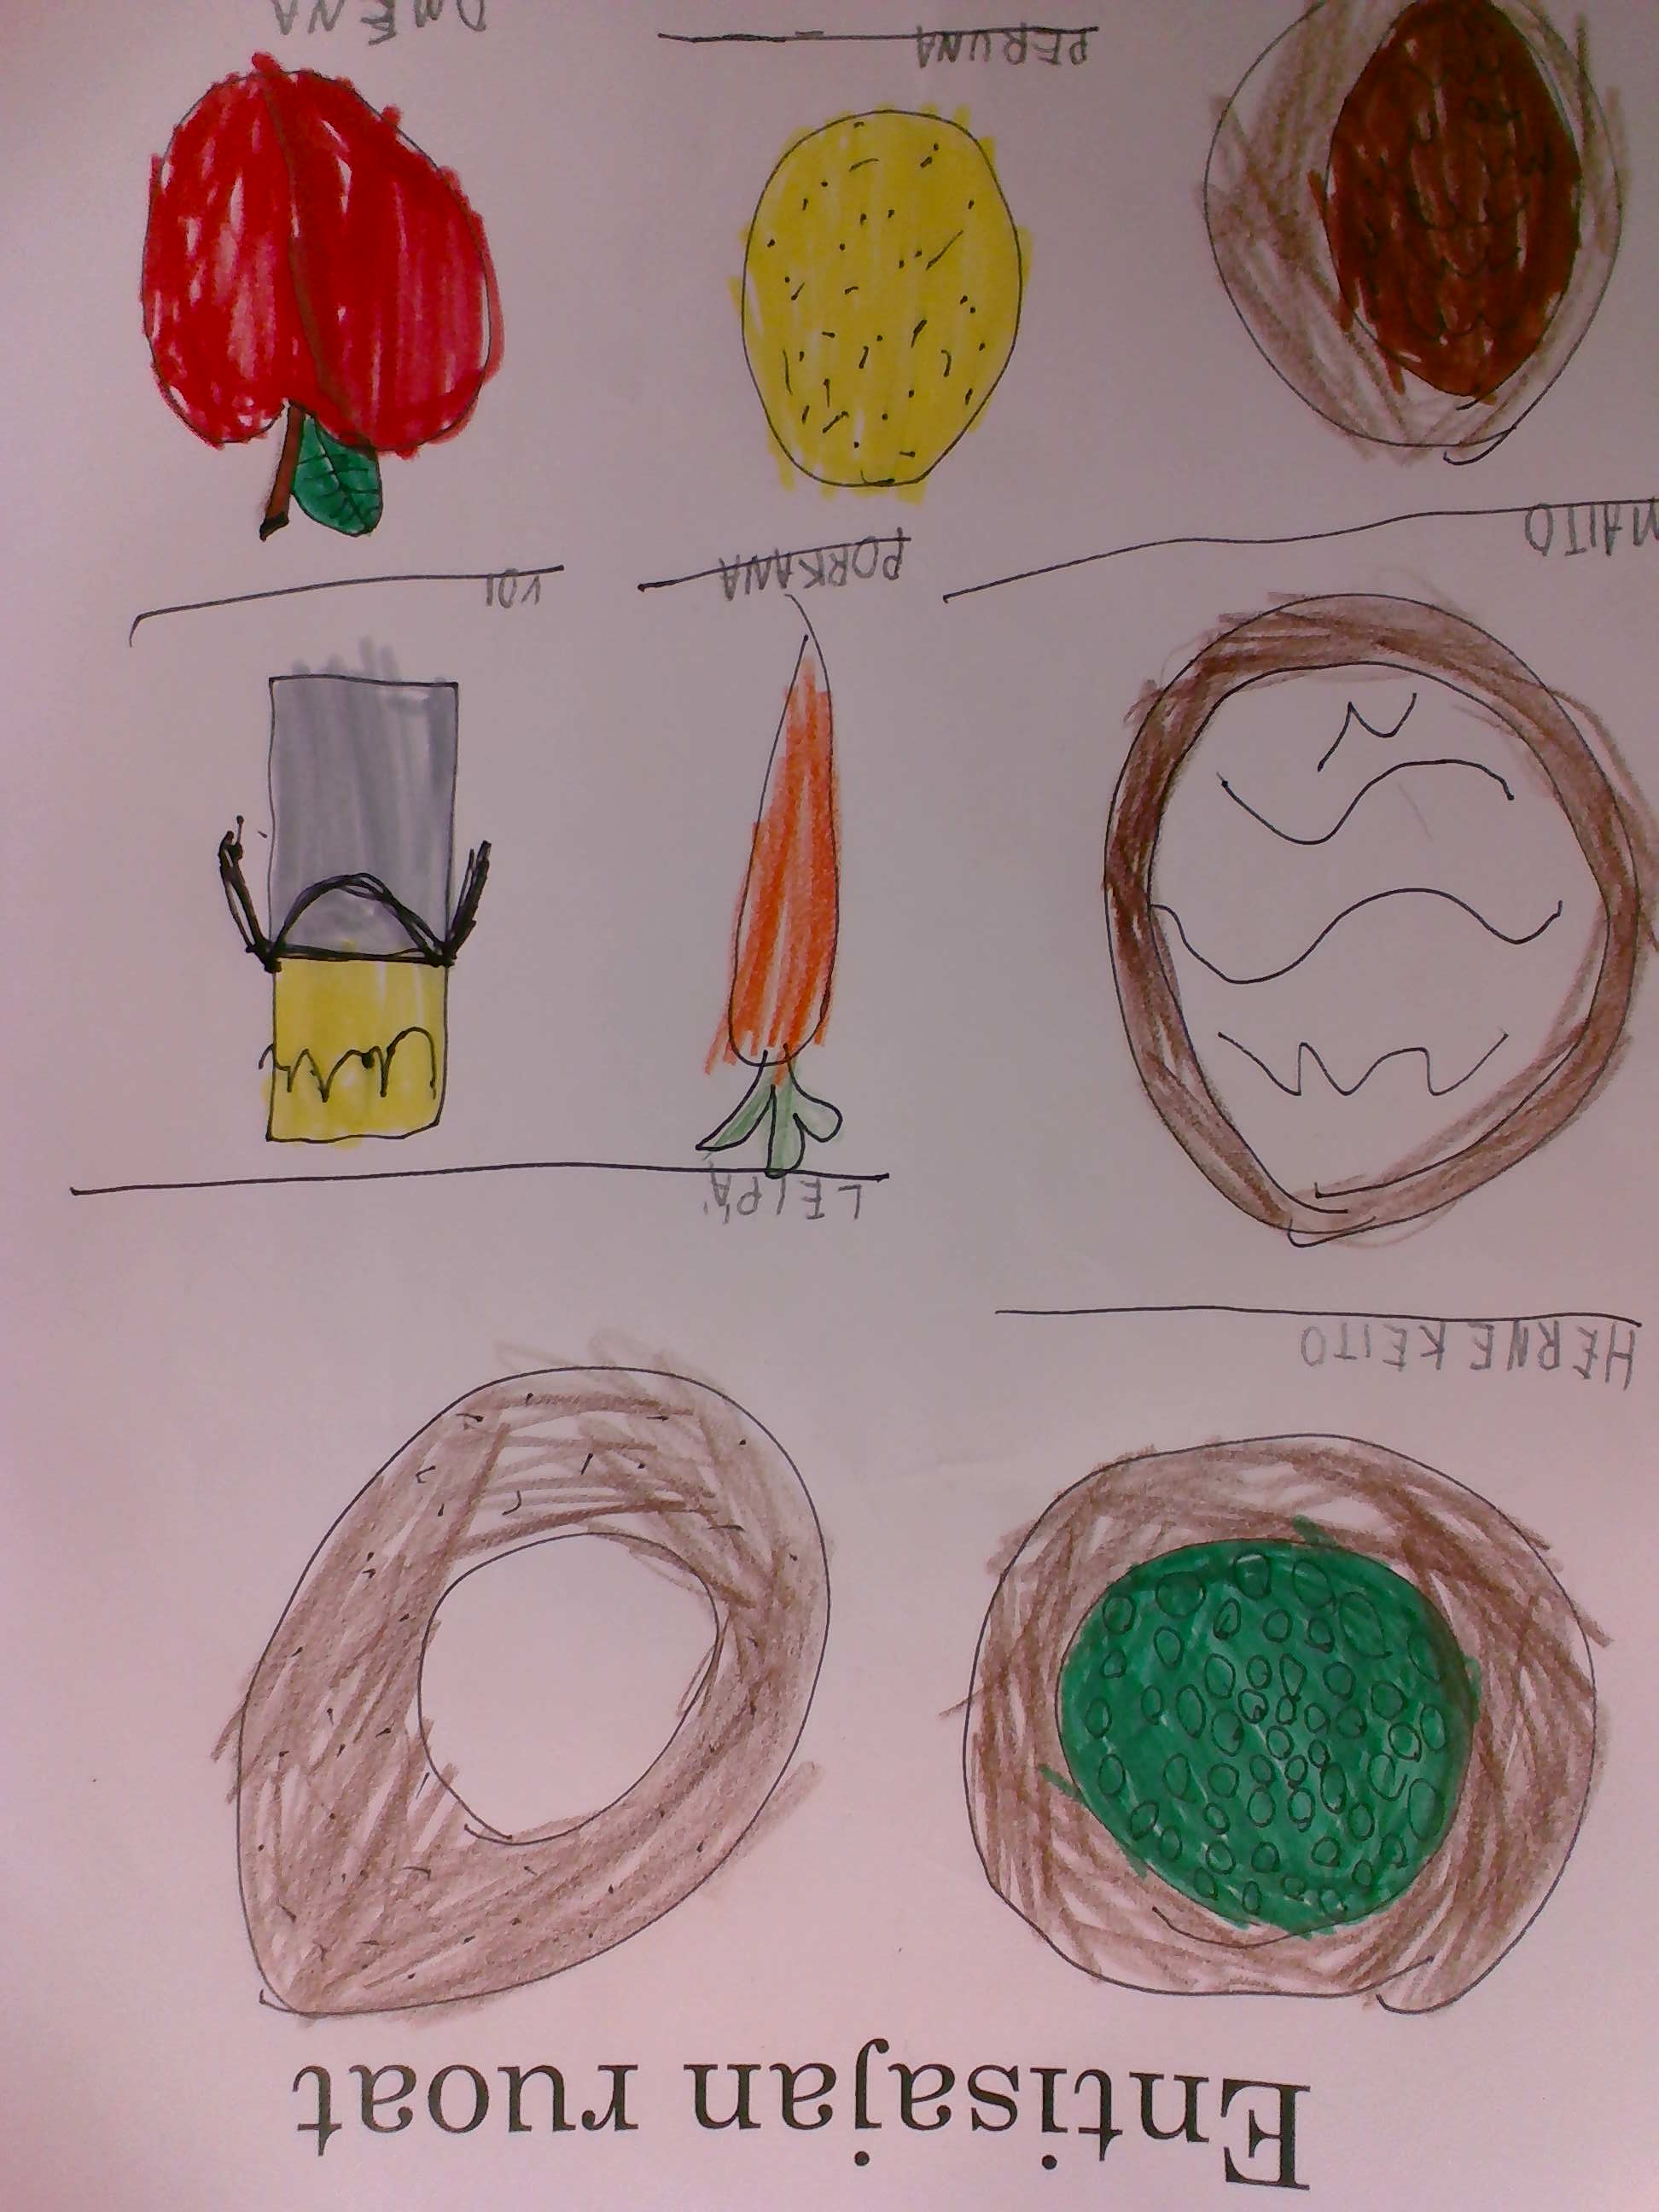 Entisajan ruoat
HERNE KEITO
LEIPÄ
MAITO
PORKANA
VOI
PERUNA
OMENA